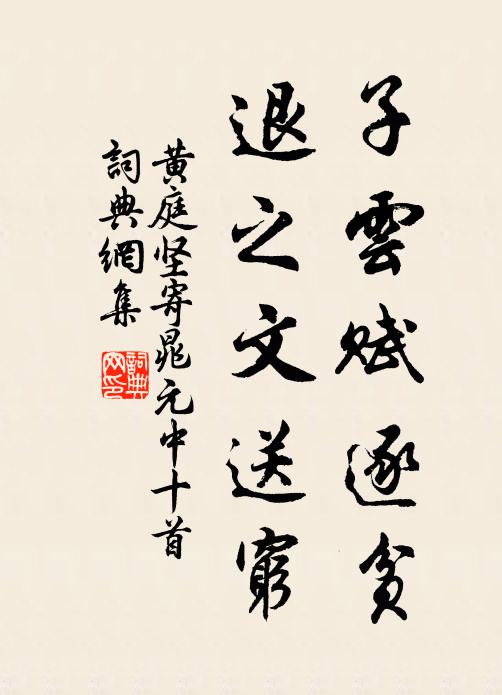 子雲赋逐貧
退之文送窮
黄庭坚寄晁元中十首
詞典網集
詞典网印